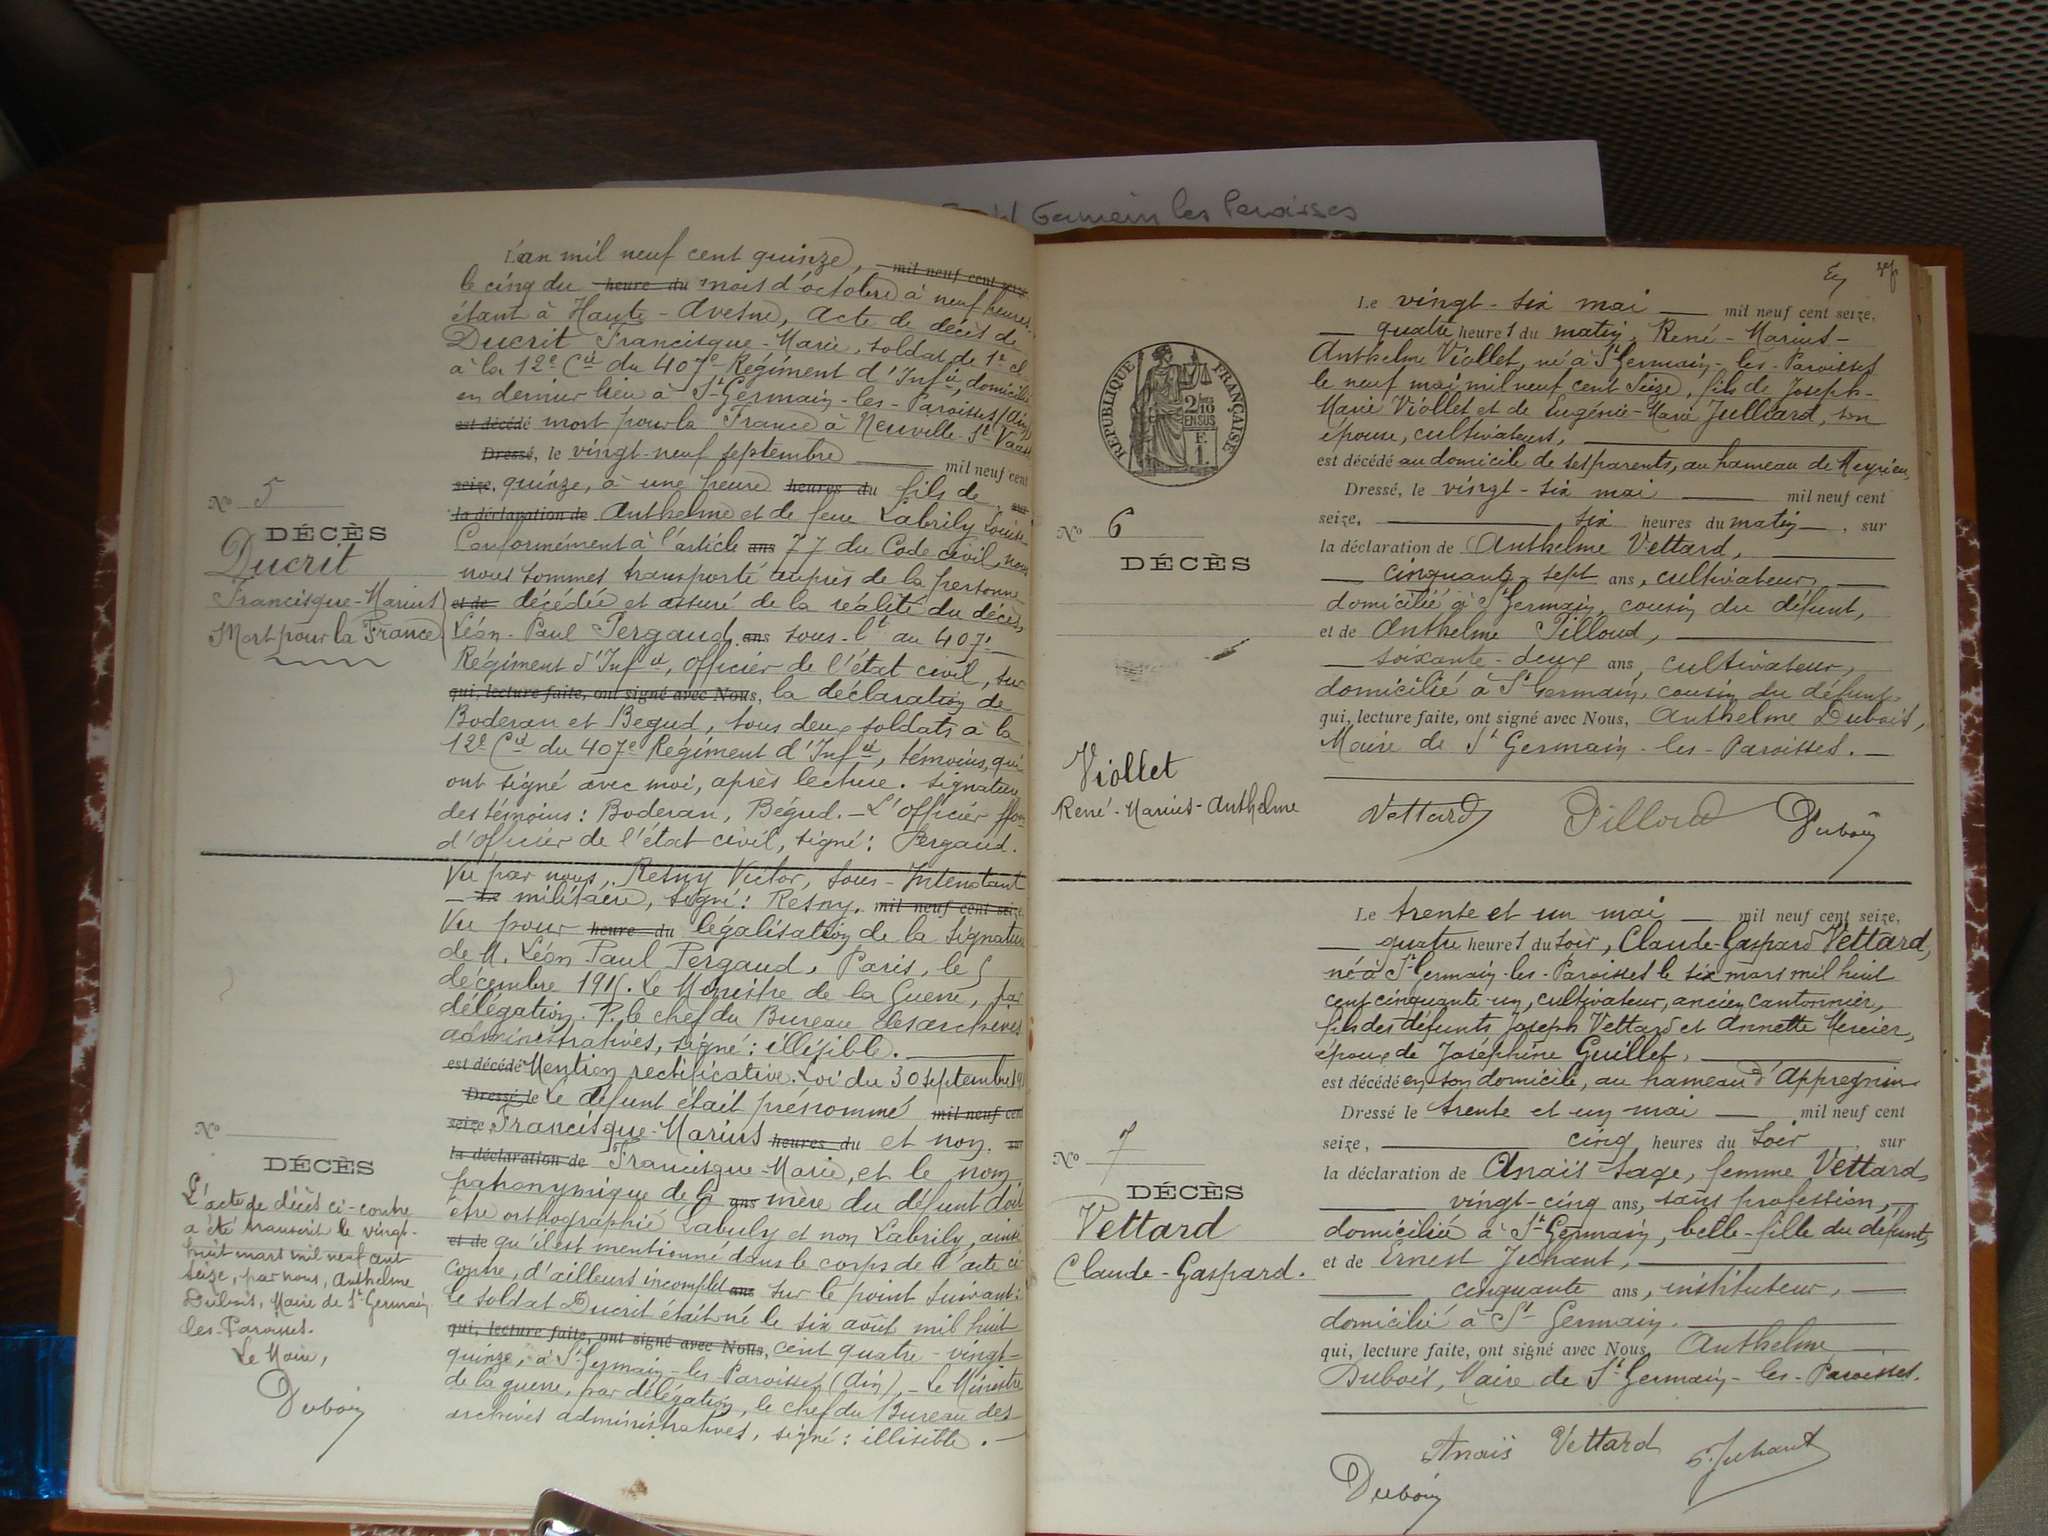 Germain les Paroisses
L'an mil neuf cent quinze, mil neuf cent seize
le cinq du heure du mois d'octobre à neuf heures,
étant à Haute-Avesne, Acte de décès de
Ducrit Francisque-Marie, soldat de 1e cl
à la 12e Cie du 407e Régiment d'Infie, domicilié
en dernier lieu à St Germain-les-Paroisses (Ain)
est décédé mort pour la France à Neuville-St Vaast
Dressé, le vingt-neuf septembre mil neuf cent
seize, quinze, à une heure heures du fils de sur
la déclaration de Anthelme et de feue Labrily Louise
Conformément à l'article ans 77 du Code civil, nous
nous sommes transporté auprès de la personne
et de décédée et assuré de la réalité du décès,
Léon-Paul Pergaud ans sous-lt au 407e
Régiment d'Infie, officier de l'état civil, sur
qui, lecture faite, ont signé avec Nous, la déclaration de
Boderan et Begud, tous deux soldats à la
12e Cie du 407e Régiment d'Infie, témoins, qui
ont signé avec moi, après lecture. Signature
des témoins: Boderan, Bégud. - L'officier
d'officier de l'état civil, signé: Pergaud.
No 5
DÉCÈS
Ducrit
Francisque-Marius
Mort pour la France
Vu par nous, Resny Victor, Sous-Intendant
Le militaire, signé: Resny. mil neuf cent seize
Vu pour heure du légalisation de la signature
de M. Léon Paul Pergaud, Paris, le
décembre 1915. Le Ministre de la Guerre, par
délégation. P. le chef du Bureau des archives
administratives, signé: illisible.
est décédé Mention rectificative. Loi du 30 septembre
Dressé, le Le défunt était prénommé mil neuf cent
seize, Francisque-Marius heures du et non sur
la déclaration de Francisque-Marie, et le nom
patronymique de la ans mère du défunt doit
être orthographié Labuly et non Labrily, ainsi
et de qu'il est mentionné dans le corps de l'acte ci
contre, d'ailleurs incomplet ans sur le point suivant:
le soldat Ducrit était né le six août mil huit
qui, lecture faite, ont signé avec Nous, cent quatre-vingt-
quinze, à St Germain-les-Paroisses (Ain). - Le Ministre
de la guerre, par délégation, le chef du Bureau des
archives administratives, signé: illisible. -
No
DÉCÈS
L'acte de décès ci-contre
a été transcrit le vingt-
huit mars mil neuf cent
seize, par nous, Anthelme
Dubois, Maire de St Germain
les-Paroisses.
Le Maire,
Dubois
RÉPUBLIQUE FRANÇAISE
2/10
EN SUS
F.
1.
Le vingt-six mai mil neuf cent seize,
quatre heures du matin, René-Marius-
Anthelme Viollet, né à St Germain-les-Paroisses
le neuf mai mil neuf cent seize, fils de Joseph-
Marie Viollet et de Eugénie-Marie Julliard, son
épouse, cultivateurs,
est décédé au domicile de ses parents, au hameau de Meyrieu,
Dressé, le vingt-six mai mil neuf cent
seize, six heures du matin, sur
la déclaration de Anthelme Vettard,
cinquante-sept ans, cultivateur,
domicilié à St Germain, cousin du défunt,
et de Anthelme Pilloud,
soixante-deux ans, cultivateur,
domicilié à St Germain, cousin du défunt.
qui, lecture faite, ont signé avec Nous, Anthelme Dubois,
Maire de St Germain-les-Paroisses. -
Vettard Pilloud Dubois
No 6
DÉCÈS
Viollet
René-Marius-Anthelme
Le trente et un mai mil neuf cent seize,
quatre heures du soir, Claude-Gaspard Vettard,
né à St Germain-les-Paroisses le six mars mil huit
cent cinquante-un, cultivateur, ancien cantonnier,
fils des défunts Joseph Vettard et Annette Mercier,
époux de Joséphine Guillet,
est décédé en son domicile, au hameau d'Appregnin
Dressé le trente et un mai mil neuf cent
seize, cinq heures du soir, sur
la déclaration de Anaïs Sage, femme Vettard,
vingt-cinq ans, sans profession,
domiciliée à St Germain, belle-fille du défunt,
et de Ernest Jechant,
cinquante ans, instituteur,
domicilié à St Germain.
qui, lecture faite, ont signé avec Nous, Anthelme
Dubois, Maire de St Germain-les-Paroisses.
Anaïs Vettard
Dubois
No 7
DÉCÈS
Vettard
Claude-Gaspard.